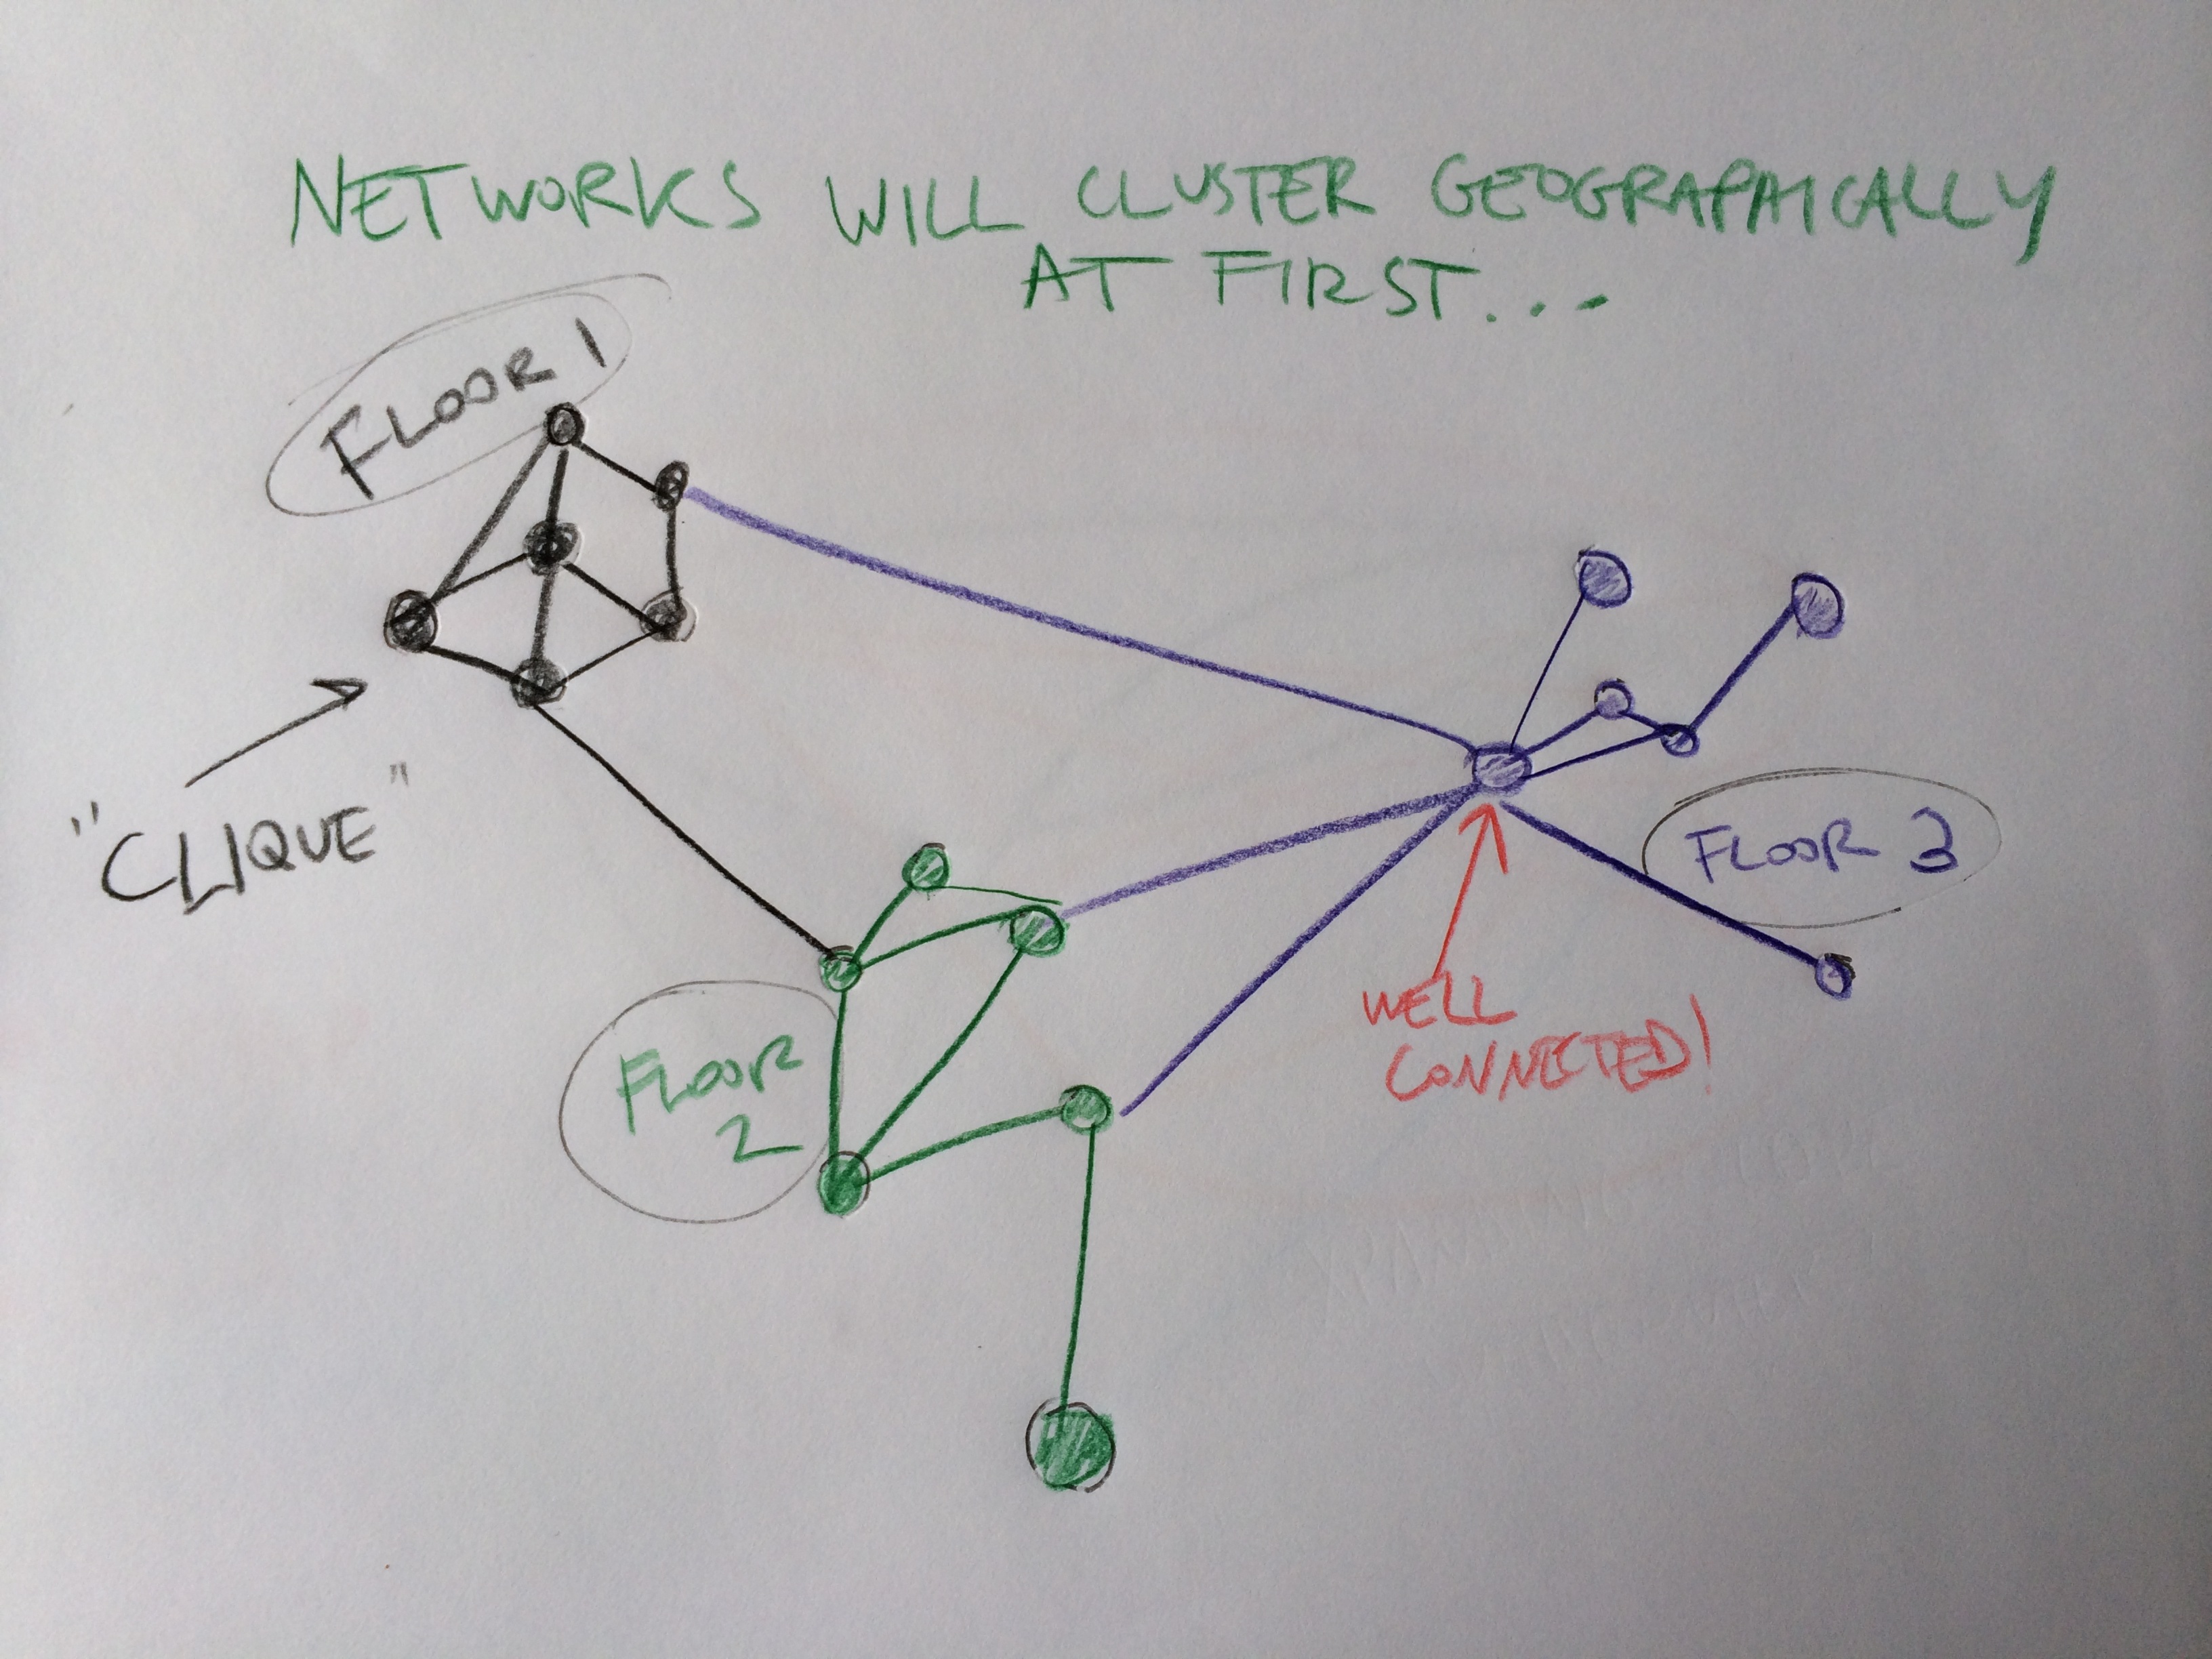 NETWORKS WILL CLUSTER GEOGRAPHICALLY
AT FIRST...
FLOOR 1
"CLIQUE"
FLOOR 3
WELL
CONNECTED!
FLOOR
2